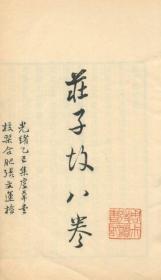 莊子故八卷
光緒乙巳集虛草堂
校栞合肥張文運檢